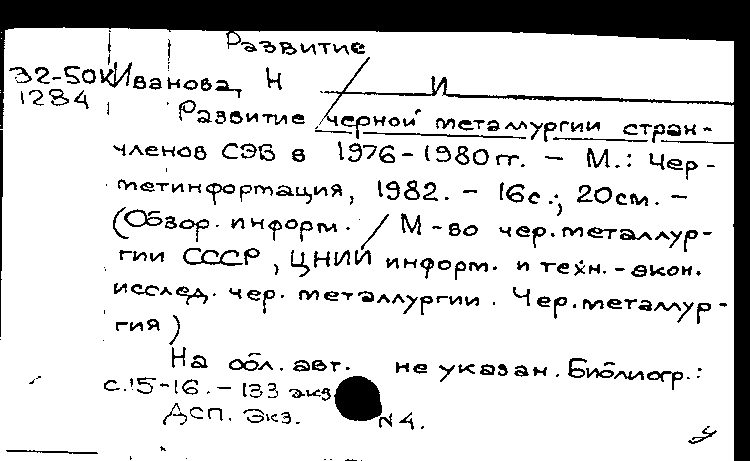 Развитие
32-50К Иванова, Н И
1284
Развитие черной металлургии стран-
членов СЭВ в 1976-1980 гг. - М.: Чер-
метинформация, 1982. - 16 с.; 20 см. -
(Обзор. информ. / М-во чер. металлур-
гии СССР, ЦНИИ информ. и техн.-экон.
исслед. чер. металлургии. Чер. металлур-
гия)
На обл. авт. не указан. Библиогр.:
с. 15-16. - 133 экз
ДСП. Экз. N 4.
у